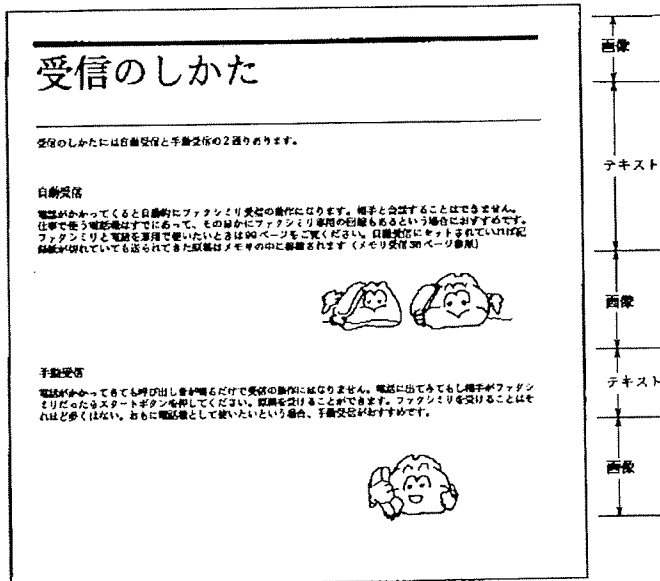 受信のしかた
受信のしかたには自動受信と手動受信の2通りあります。
自動受信
電話がかかってくると自動的にファクシミリ受信の動作になります。相手と会話することはできません。
仕事で使う電話機はすでにあって、そのほかにファクシミリ専用の回線もあるという場合におすすめです。
ファクシミリと電話を兼用で使いたいときは99ページをご覧ください。自動受信にセットされていれば記
録紙が切れていても送られてきた原稿はメモリの中に蓄積されます(メモリ受信38ページ参照)
手動受信
電話がかかってきても呼び出し音が鳴るだけで受信の動作にはなりません。電話に出てみてもし相手がファクシ
ミリだったらスタートボタンを押してください。原稿を受けることができます。ファクシミリを受けることはそ
れほど多くはない。おもに電話機として使いたいという場合、手動受信がおすすめです。
画像
テキスト
画像
テキスト
画像